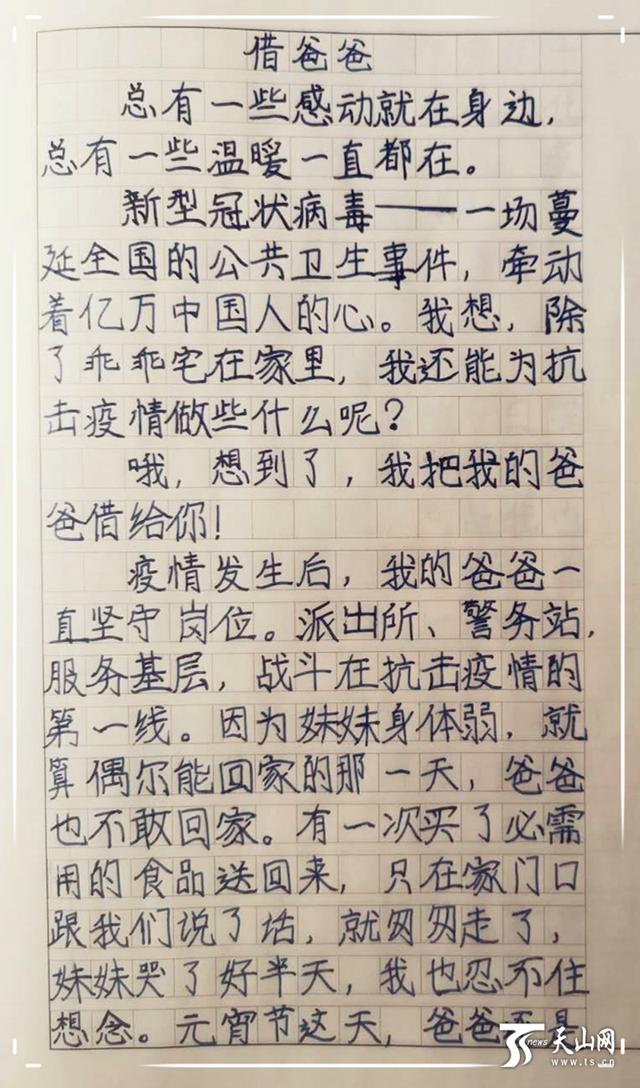 借爸爸
总有一些感动就在身边,
总有一些温暖一直都在。
新型冠状病毒——一场蔓
延全国的公共卫生事件,牵动
着亿万中国人的心。我想,除
了乖乖宅在家里,我还能为抗
击疫情做些什么呢?
哦,想到了,我把我的爸
爸借给你!
疫情发生后,我的爸爸一
直坚守岗位。派出所、警务站,
服务基层,战斗在抗击疫情的
第一线。因为妹妹身体弱,就
算偶尔能回家的那一天,爸爸
也不敢回家。有一次买了必需
用的食品送回来,只在家门口
跟我们说了话,就匆匆走了,
妹妹哭了好半天,我也忍不住
想念。元宵节这天,爸爸
TS news 天山网
www.ts.cn